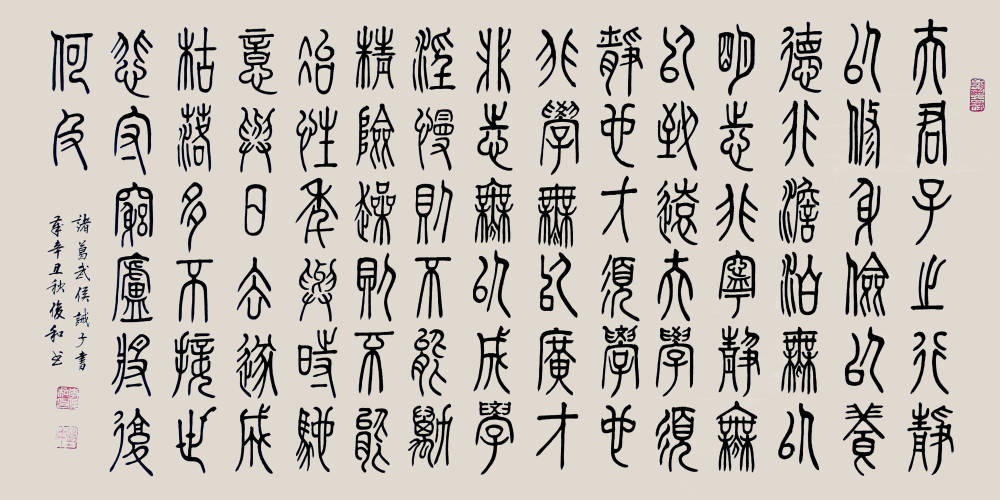 夫君子之行靜
以修身儉以養
德非澹泊無以
明志非寧靜無
以致遠夫學須
靜也才須學也
非學無以廣才
非志無以成學
淫慢則不能勵
精險躁則不能
冶性年與時馳
意與日去遂成
枯落多不接世
悲守窮廬將復
何及
諸葛武侯誡子書
歲辛丑秋俊和書